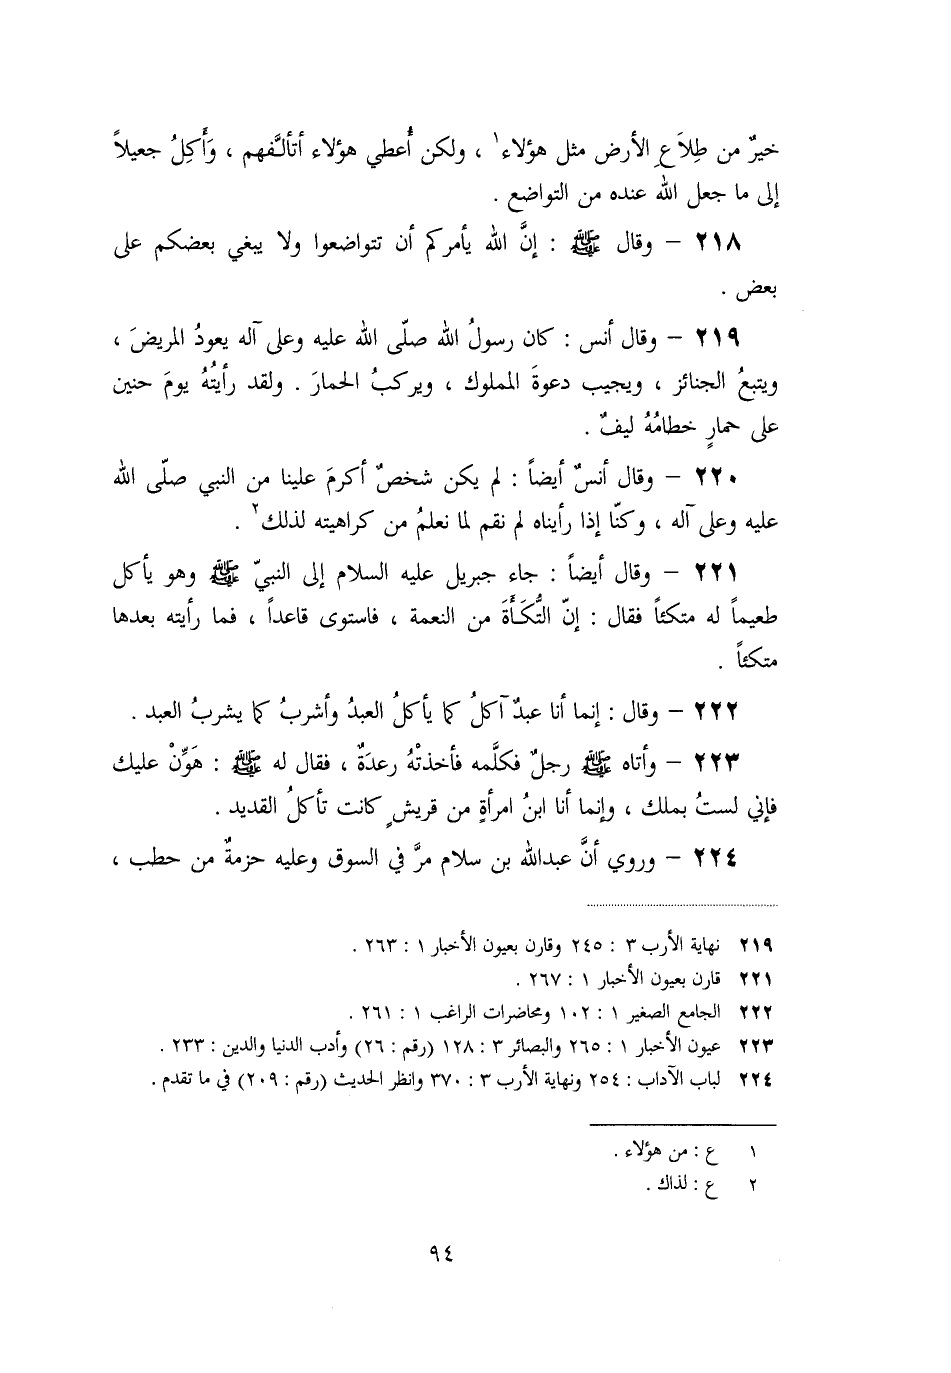 خيرٌ من طِلَاعِ الأرض مثل هؤلاء١ ، ولكن أُعطي هؤلاء أتألَّفهم ، وَأَكِلُ جعيلاً
إلى ما جعل الله عنده من التواضع .
٢١٨ – وقال ﷺ : إنَّ الله يأمركم أن تتواضعوا ولا يبغي بعضكم على
بعض .
٢١٩ – وقال أنس : كان رسولُ الله صلّى الله عليه وعلى آله يعودُ المريضَ ،
ويتبعُ الجنائز ، ويجيب دعوةَ المملوك ، ويركبُ الحمارَ . ولقد رأيتُهُ يومَ حنين
على حمارٍ خطامُهُ ليفٌ .
٢٢٠ – وقال أنسٌ أيضاً : لم يكن شخصٌ أكرمَ علينا من النبي صلّى الله
عليه وعلى آله ، وكنّا إذا رأيناه لم نقم لما نعلمُ من كراهيته لذلك٢ .
٢٢١ – وقال أيضاً : جاء جبريل عليه السلام إلى النبيّ ﷺ وهو يأكل
طعيماً له متكئاً فقال : إنّ التُّكَأَةَ من النعمة ، فاستوى قاعداً ، فما رأيته بعدها
متكئاً .
٢٢٢ – وقال : إنما أنا عبدٌ آكلُ كما يأكلُ العبدُ وأشربُ كما يشربُ العبد .
٢٢٣ – وأتاه ﷺ رجلٌ فكلَّمه فأخذتْهُ رعدَةٌ ، فقال له ﷺ : هَوِّنْ عليك
فإني لستُ بملك ، وإنما أنا ابنُ امرأةٍ من قريشٍ كانت تأكلُ القديد .
٢٢٤ – وروي أنَّ عبدالله بن سلام مرَّ في السوق وعليه حزمةٌ من حطب ،
٢١٩ نهاية الأرب ٣ : ٢٤٥ وقارن بعيون الأخبار ١ : ٢٦٣ .
٢٢١ قارن بعيون الأخبار ١ : ٢٦٧ .
٢٢٢ الجامع الصغير ١ : ١٠٢ ومحاضرات الراغب ١ : ٢٦١ .
٢٢٣ عيون الأخبار ١ : ٢٦٥ والبصائر ٣ : ١٢٨ (رقم : ٢٦) وأدب الدنيا والدين : ٢٣٣ .
٢٢٤ لباب الآداب : ٢٥٤ ونهاية الأرب ٣ : ٣٧٠ وانظر الحديث (رقم : ٢٠٩) في ما تقدم .
١ ع : من هؤلاء .
٢ ع : لذاك .
٩٤